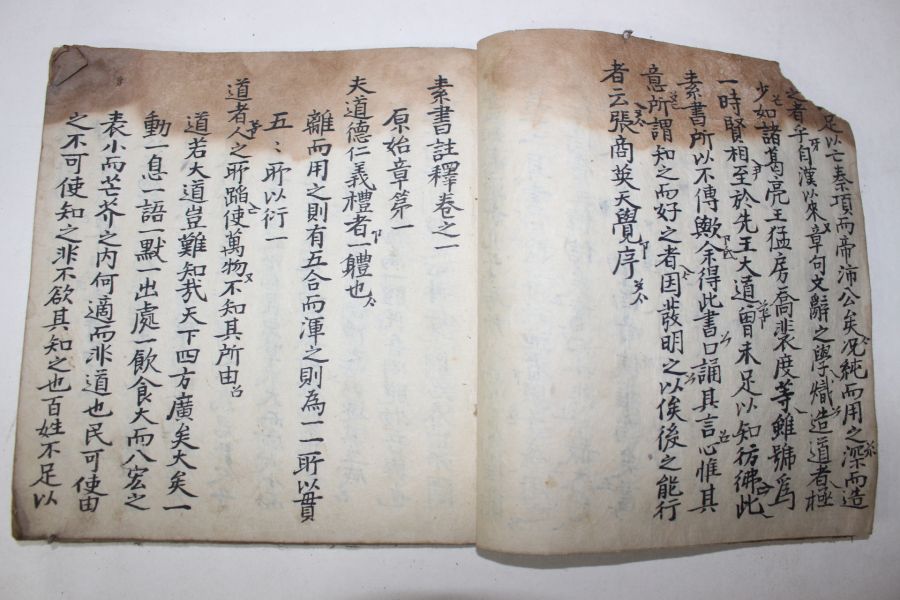 足以亡秦項而帝沛公矣況純而用之深而造
之者乎自漢以來章句文辭之學熾造道者極
少如諸葛亮王猛房喬裴度等雖號爲
一時賢相至於先王大道曾未足以知彷彿此
素書所以不傳歟余得此書口誦其言心惟其
意所謂知之而好之者因發明之以俟後之能行
者云張商英天覺序
素書註釋卷之一
原始章第一
夫道德仁義禮者一軆也
離而用之則有五合而渾之則為一一所以貫
五〻所以衍一
道者人之所蹈使萬物不知其所由
道若大道豈難知哉天下四方廣矣大矣一
動一息一語一默一出處一飲食大而八宏之
表小而芒芥之內何適而非道也民可使由
之不可使知之非不欲其知之也百姓不足以